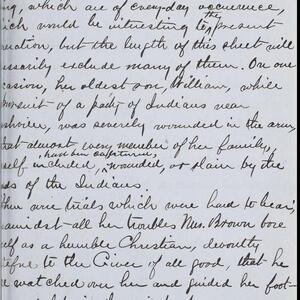 ing, which are of every-day occurrence,
ich would be interesting to the present
eration, but the length of this sheet will
essarily exclude many of them. On one
casion, her oldest son, William, while
pursuit of a party of Indians near
ashville, was severely wounded in the arm,
that almost every member of her family,
self included, had been captured, wounded, or slain by the
ds of the Indians.
These were trials which were hard to bear,
amidst all her troubles Mrs. Brown bore
self as a humble Christian, devoutly
to the Giver of all good, that he
watched over her and guided her foot-